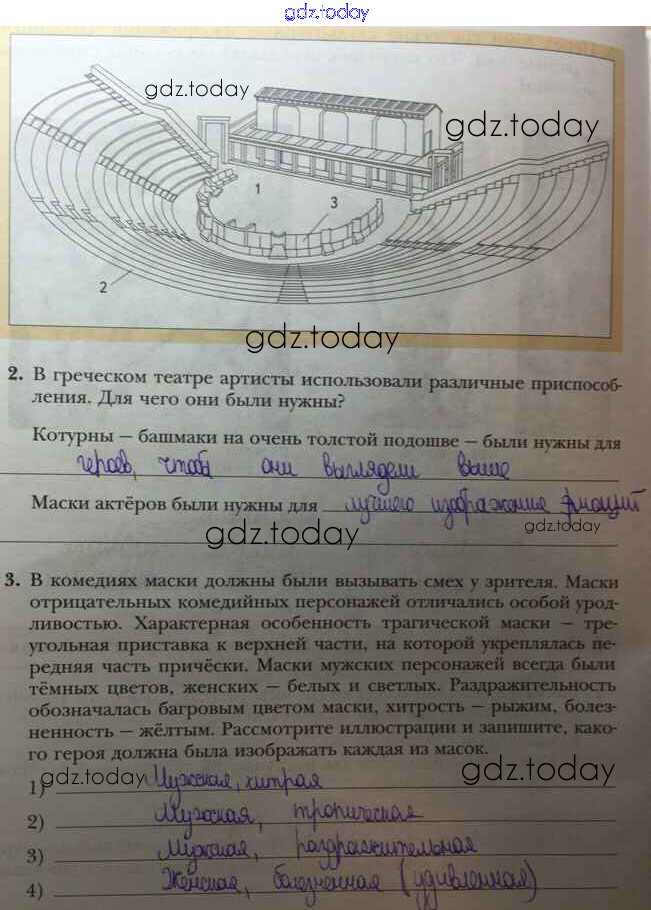 gdz.today
gdz.today
gdz.today
1
3
2
gdz.today
2. В греческом театре артисты использовали различные приспособ-
ления. Для чего они были нужны?
Котурны – башмаки на очень толстой подошве – были нужны для
героев, чтобы они выглядели выше
Маски актёров были нужны для лучшего изображения эмоций
gdz.today
gdz.today
3. В комедиях маски должны были вызывать смех у зрителя. Маски
отрицательных комедийных персонажей отличались особой урод-
ливостью. Характерная особенность трагической маски – тре-
угольная приставка к верхней части, на которой укреплялась пе-
редняя часть причёски. Маски мужских персонажей всегда были
тёмных цветов, женских – белых и светлых. Раздражительность
обозначалась багровым цветом маски, хитрость – рыжим, болез-
ненность – жёлтым. Рассмотрите иллюстрации и запишите, како-
го героя должна была изображать каждая из масок.
gdz.today
gdz.today
1) Мужская, хитрая
2) Мужская, трогическая
3) Мужская, раздражительная
4) Женская, болезненная (удивленная)